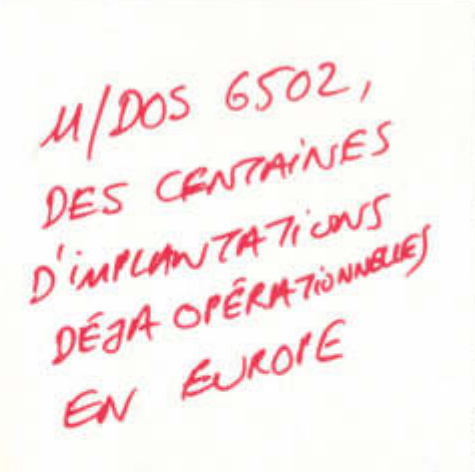 M/DOS 6502,
DES CENTAINES
D'IMPLANTATIONS
DÉJA OPÉRATIONNELLES
EN EUROPE